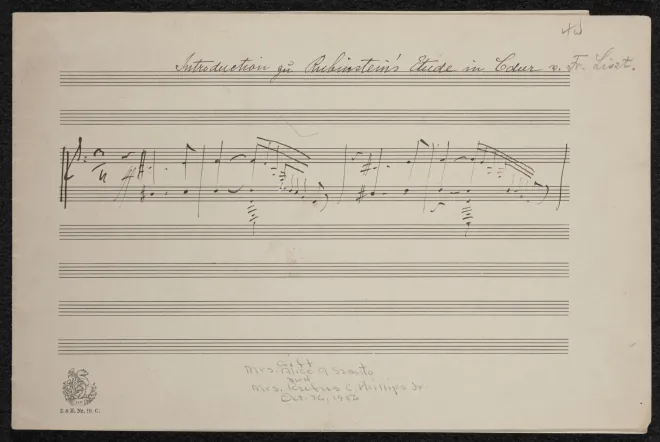 Introduction zu Rubinstein's Etude in Cdur v. Fr. Liszt.
Gift
Mrs. Alice Szanto
and
Mrs. C. Phillips Jr.
Oct. 26, 1953